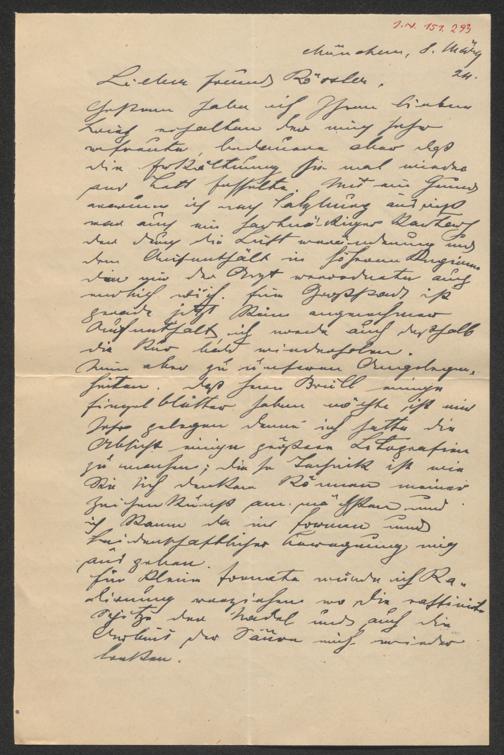 J.N. 151.293
München, 8. März
24.
Lieber Freund Rössler,
Gestern habe ich Ihren lieben
Brief erhalten der mich sehr
erfreute, bedauere aber daß
die Erkältung Sie mal wieder
ans Bett fesselte. Mit ein Grund
warum ich nach Salzburg ausriß
war auch ein hartnäckiger Katarrh
den durch die Luftveränderung und
dem Aufenthalt in höheren Regionen
den mir der Arzt verordnete auch
wich. Eine Großstadt ist
gerade jetzt kein angenehmer
Aufenthalt, ich werde auch deshalb
die Kur bald wiederholen.
Nun aber zu unseren Angelegen-
heiten. Daß Herr Brüll einige
Einzelblätter haben möchte ist mir
sehr gelegen denn ich hatte die
Absicht einige größere Litografien
zu machen; diese Technik ist wie
Sie sich denken können meiner
Zeichenkunst am nächsten und
ich kann da in Formen und
leidenschaftlicher Bewegung mich
ausgeben.
Für kleine Formate würde ich Ra-
dierung vorziehen wo die raffinierte
Spitze der Nadel und auch die
der Säure mich wieder
locken.